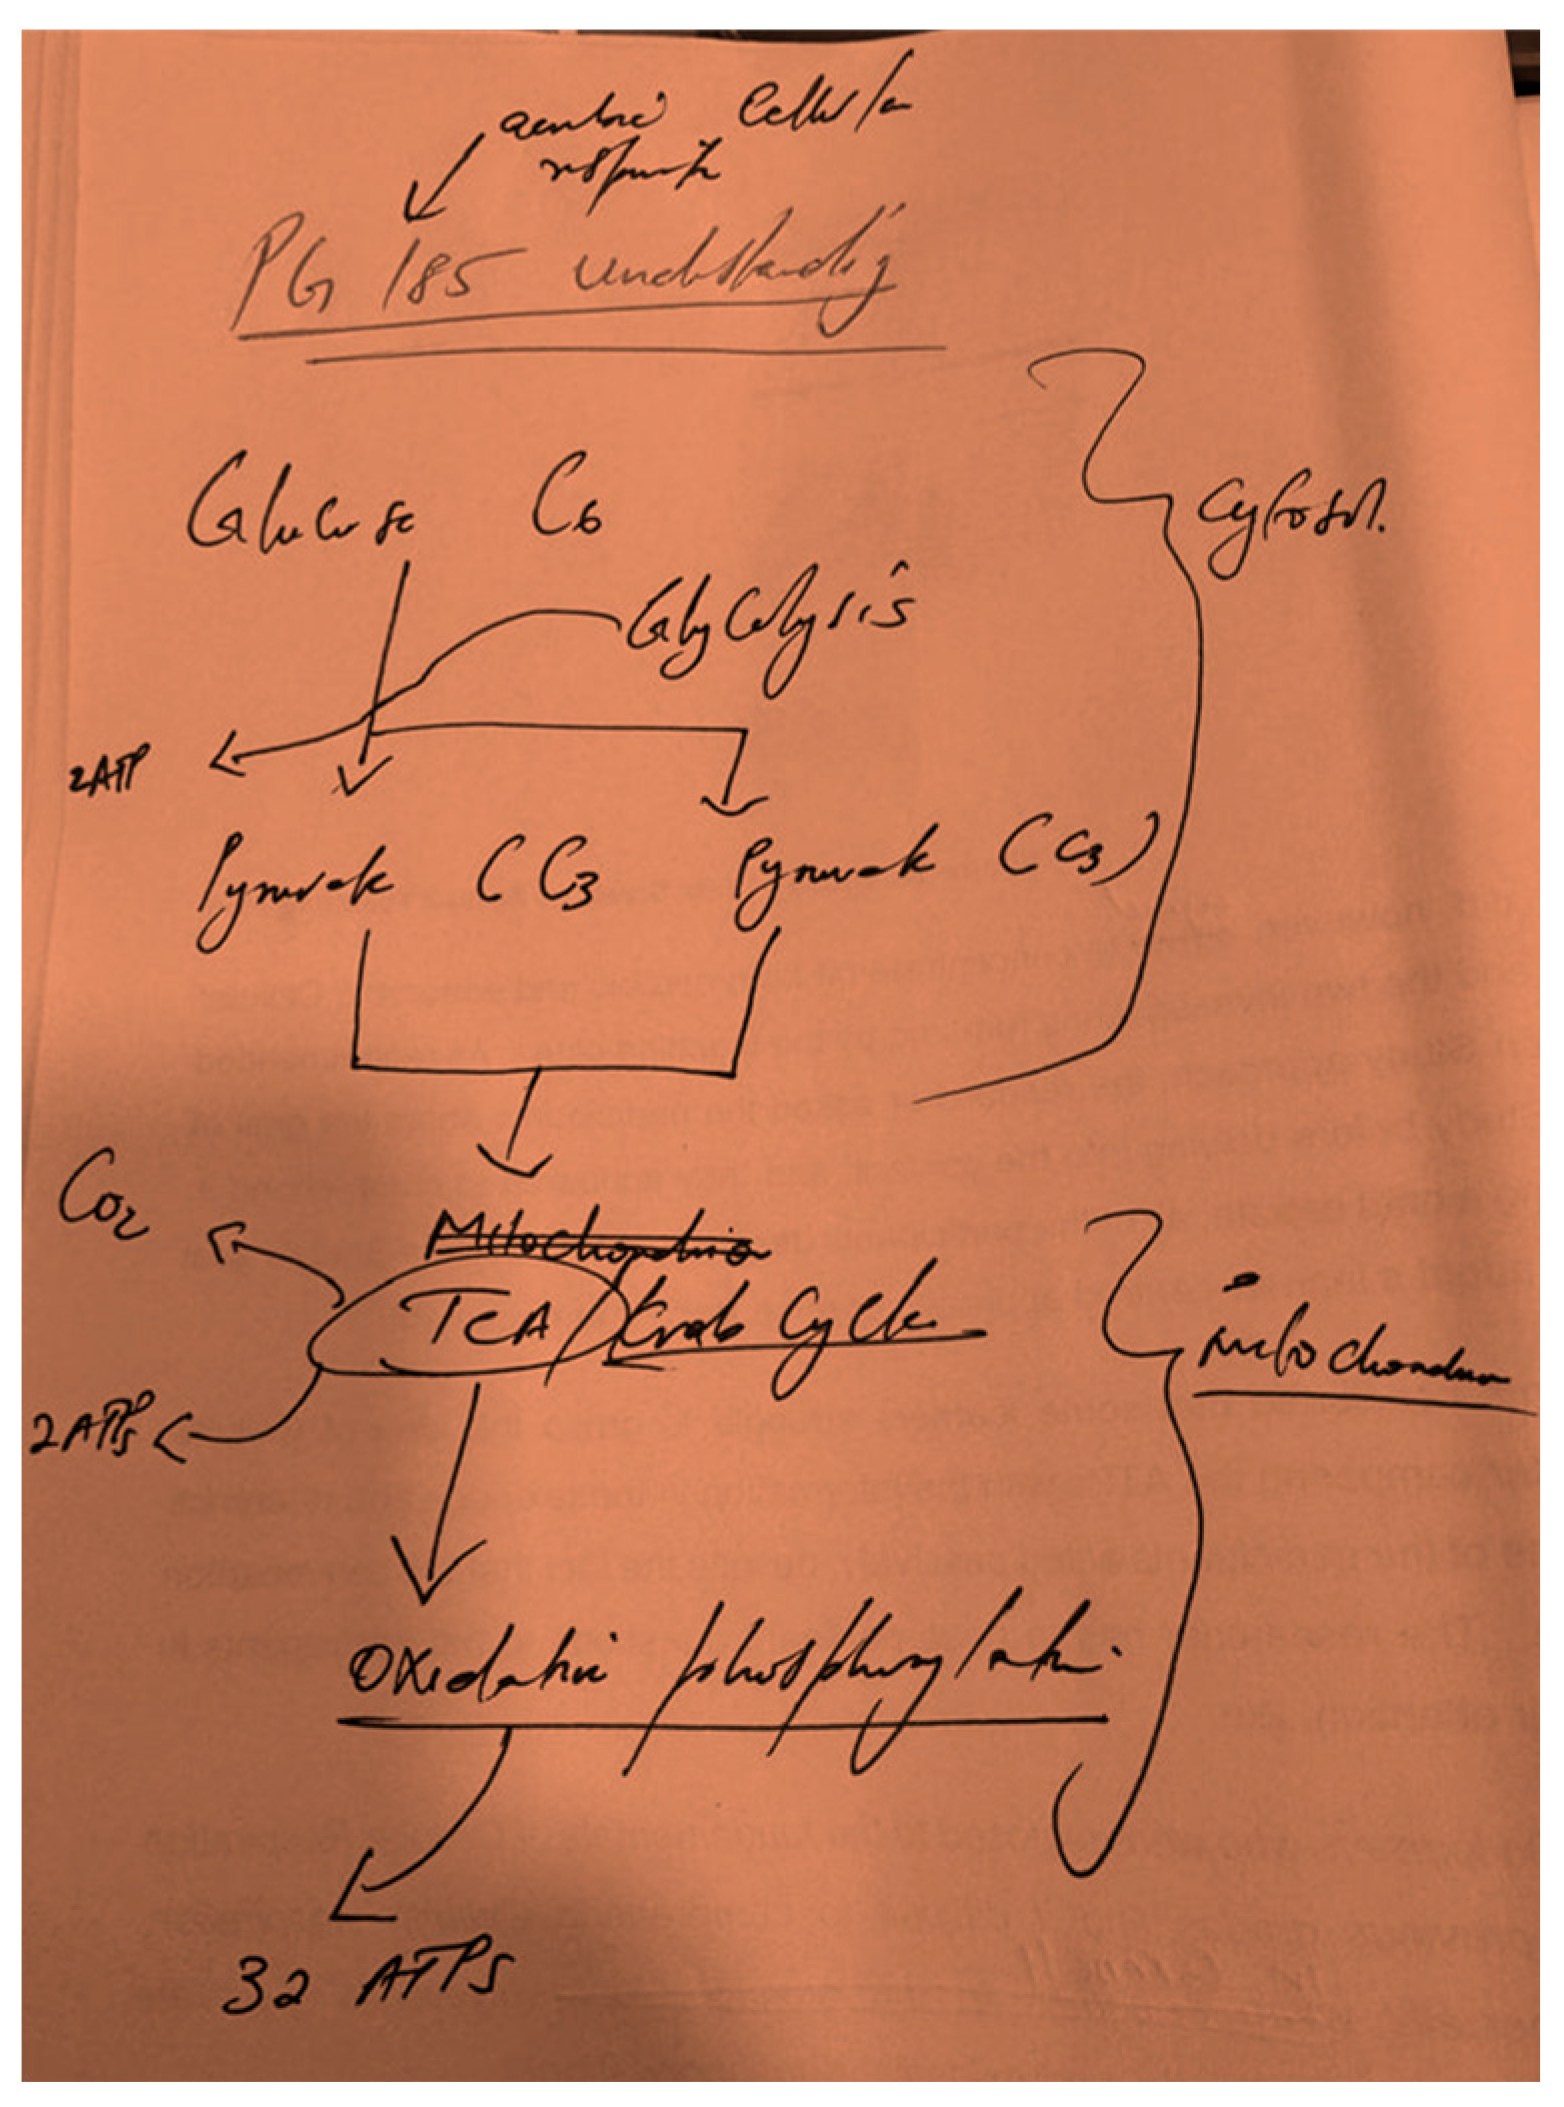 aerobic Cellular
PG 185 understanding
Glucose C6
Cytosol.
Glycolysis
2ATP
Pyruvate (C3 Pyruvate (C3)
CO2
Mitochondria
TCA/Kreb Cycle
Mitochondria
2ATPs
Oxidative phosphorylation
32 ATPs